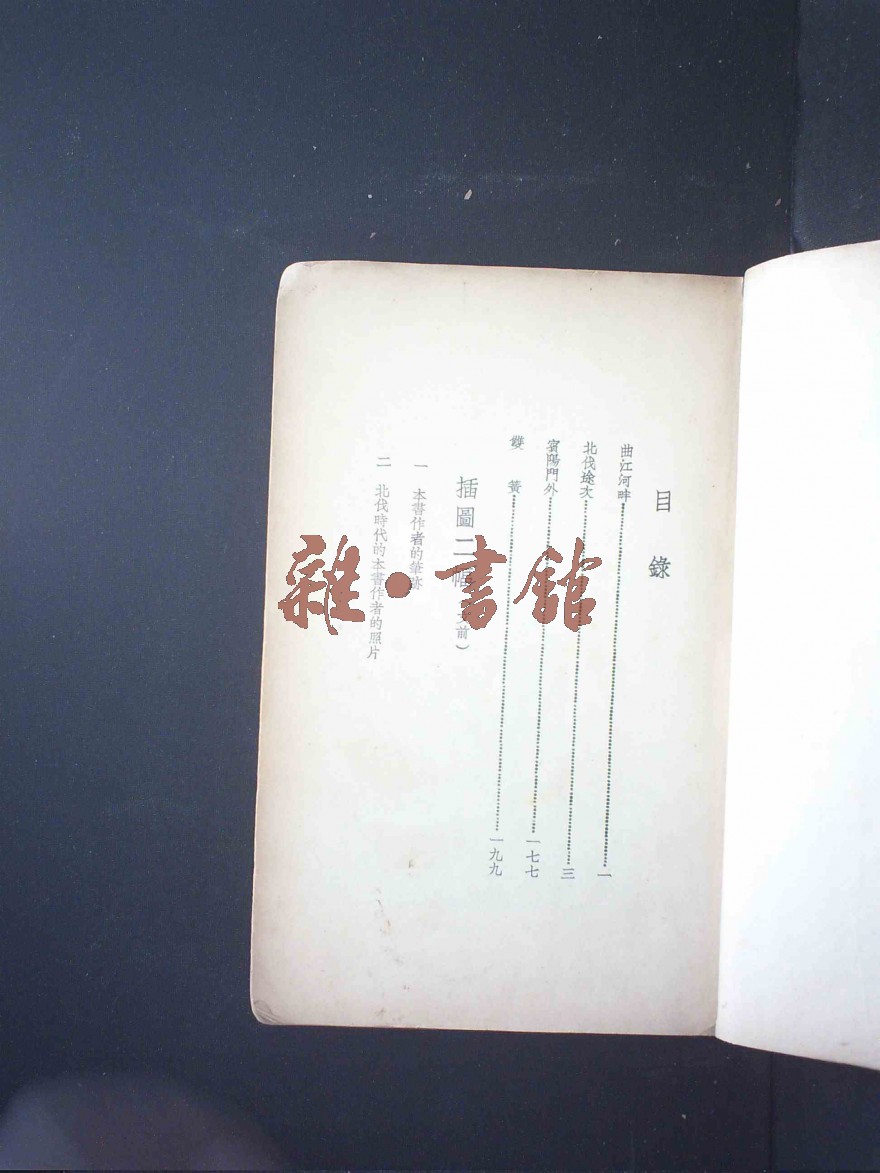 目錄
曲江河畔……一
北伐途次……三
賓陽門外……一七七
雙簧……一九九
插圖二幅（文前）
一 本書作者的筆跡
二 北伐時代的本書作者的照片
雜·書館